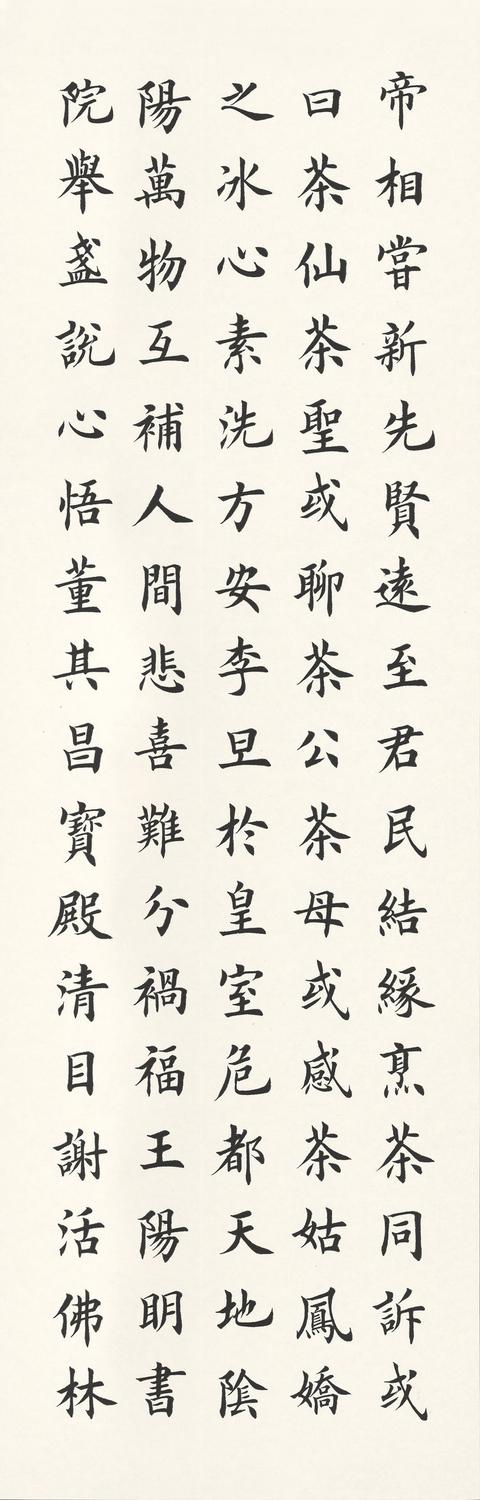 帝相嘗新先賢遠至君民結緣烹茶同訴或
曰茶仙茶聖或聊茶公茶母或感茶姑鳳嬌
之冰心素洗方安李旦於皇室危都天地陰
陽萬物互補人間悲喜難分禍福王陽明書
院舉盞說心悟董其昌寶殿清目謝活佛林